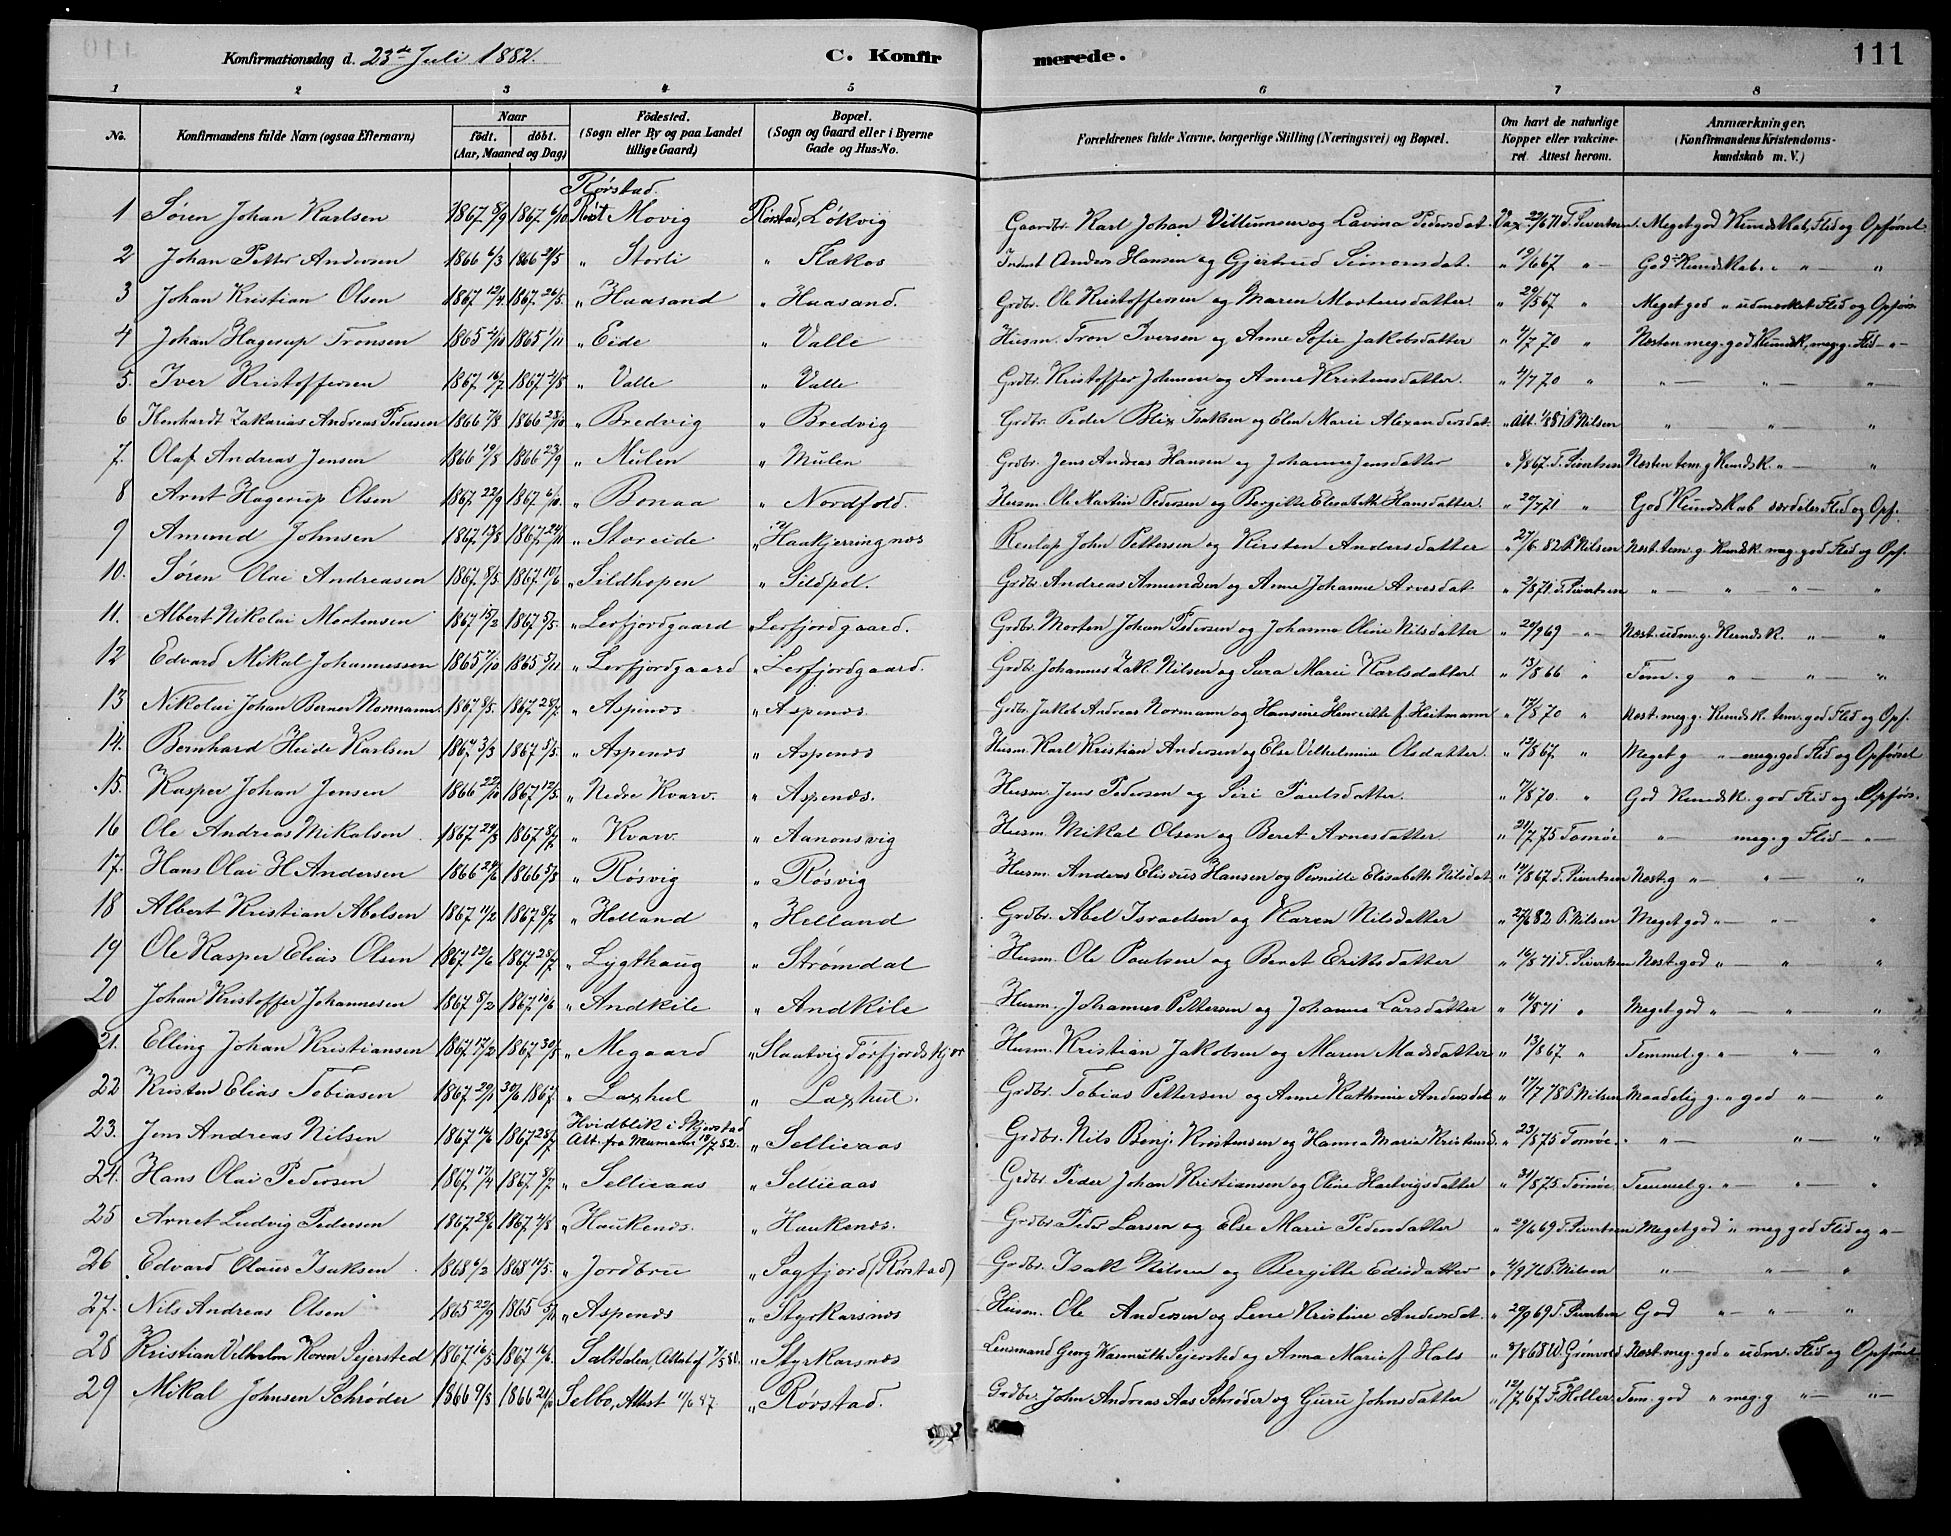 Konfirmationsdag d. 23de Juli 1882. C. Konfirmerede. 111
1 2 3 4 5 6 7 8
No. Konfirmandens fulde Navn (ogsaa Efternavn) Naar født. døbt. (Aar, Maaned og Dag) Fødested. (Sogn eller By og paa Landet tillige Gaard) Bopæl. (Sogn og Gaard eller i Byerne Gade og Hus-No. Forældrenes fulde Navne, borgerlige Stilling (Næringsvei) og Bopæl. Om havt de naturlige Kopper eller vakcineret. Attest herom. Anmærkninger. (Konfirmandens Kristendomskundskab m. V.)
Rørstad.
1 Søren Johan Karlsen 1867 8/9 1867 6/10 Movig Rørstad, Løkvig Gaardbr. Karl Johan Villumsen og Lavina Pedersdat. Vax 22/6 71 T. Sivertsen. Meget god Kundskab, Flid og Opførsel
2 Johan Petter Andersen 1866 6/3 1866 21/5 " Storli " Slakos Anders Hansen og Gjertrud Simonsdat. " 19/6 67 " God Kundskab " — "
3 Johan Kristian Olsen 1867 12/4 1867 26/5 " Haasand " Haasand. Grdbr. Ole Kristoffersen og Maren Mortensdatter " 29/5 67 " Meget god " udmerket Flid og Opførs.
4 Johan Hagerup Tronsen 1865 4/10 1865 1/11 " Eide " Valle Husm. Tron Iversen og Anne Sofie Jakobsdatter " 4/7 70 " Næsten meg. god Kundsk., meg. g. Flid — " —
5. Iver Kristoffersen 1867 16/7 1867 4/8 " Valle " Valle Grdbr. Kristoffer Johnsen og Anne Kristensdatter. " 4/7 70 " " — " — "
6 Henhardt Zakarias Andreas Pedersen 1866 7/8 1866 28/10 " Bredvig " Bredvig Grdbr. Peder Blix Isaksen og Elen Marie Alexandersdat. " Att. 1/8 81 P. Nilsen " — " — "
7. Olaf Andreas Jensen 1866 19/8 1866 23/9 " Mulen " Mulen Grdbr. Jens Andreas Hansen og Johanne Jensdatter " 8/8 67. T. Sivertsen Næsten tem. g Kundsk. " — "
8 Arnt Hagerup Olsen 1867 22/9 1867 6/10 " Bonaa " Nordfold. Husm. Ole Martin Pedersen og Bergitte Elisabeth Hansdatter. " 20/7 71 " God Kundskab særdeles Flid og Opf.
9 Amund Johnsen 1867 13/8 1867 24/11 " Storeide " Haakjerringnæs Renlap John Pettersen og Kirsten Andersdatter " 27/6 82 P. Nilsen Næst. tem. g. Kundsk. meg. god Flid og Opf.
10. Søren Olai Andreasen 1867 8/5 1867 10/6 " Sildhopen " Sildpol. Grdbr. Andreas Amundsen og Anne Johanne Arnesdat. " 2/8 71. T. Sivertsen " — " — " — "
11. Albert Nikolai Mortensen 1867 15/2 1867 5/5 " Lerfjordgaard " Lerfjordgaard. Grdbr. Morten Johan Pedersen og Johanna Oline Nilsdatter " 20/9 69 — " — Næst. udm. g. Kundsk. " — "
12 Edvard Mikal Johannessen 1865 7/10 1865 5/11 " Lerfjordgaard " Lerfjordgaard. Grdbr. Johannes Zak. Nilsen og Sara Marie Karlsdatter " 13/8 66 " Tem. g " — " — "
13 Nikolai Johan Berner Normann. 1867 8/5 1867 28/7 " Aspenæs " Aspenæs. Grdbr. Jakob Andreas Normann og Hansine Henriette f. Heitmann " 17/8 70 " Næst. meg. g. Kundsk. tem. god Flid og Opf.
14. Bernhard Heide Karlsen 1867 3/3 1867 5/5 " Aspenæs " Aspenæs Husm. Karl Kristian Andersen og Else Vilhelmine Olsdatter. " 12/8 67. " Meget g " — meg. god Flid og Opførsel
15. Kasper Johan Jensen 1866 22/10 1867 12/5 " Nedre Kvarv. " Aspenæs. Husm. Jens Pedersen og Siri Paulsdatter. " 17/8 70. " God Kundsk. god Flid og Opførs.
16 Ole Andreas Mikalsen 1867 24/3 1867 8/7 " Kvarv. " Aanonsvig Husm. Mikal Olsen og Beret Arnesdatter " 21/7 75 Tomøe " — meg. g Flid — " —
17. Hans Olai H. Andersen 1866 24/6 1866 5/8 " Røsvig " Røsvig Husm. Anders Elisæus Hansen og Pernille Elisabeth Nilsdat. " 14/8 67 T. Sivertsen Næst. g " — " — "
18 Albert Kristian Abelsen 1867 11/2 1867 8/7 " Helland " Helland Grdbr. Abel Israelsen og Karen Nilsdatter " 27/6 82 P. Nilsen Meget god " — " — "
19 Ole Kasper Elias Olsen 1867 12/6 1867 28/7 " Lygthaug " Strømdal Husm. Ole Poulsen og Beret Eriksdatter " 16/8 71 T. Sivertsen Næst. god " — " "
20 Johan Kristoffer Johannesen 1867 8/2 1867 10/6 " Andkile " Andkile Husm. Johannes Pettersen og Johanna Larsdatter " 14/8 71 " Meget god " — " — "
21. Elling Johan Kristiansen 1867 17/2 1867 30/5 " Megaard " Slaatvig Tørfjordskjør Husm. Kristian Jakobsen og Maren Madsdatter " 13/8 67 " Temmel. g. " — " — "
22 Kristen Elias Tobiasen 1867 29/1 30/6 1867. " Laxhul " Laxhul. Grdbr. Tobias Pettersen og Anne Kathrine Andersdat. " 17/7 78 P. Nilsen Maadelig g. " god " — "
23. Jens Andreas Nilsen 1867 14/6 1867 28/7 Hvidblik i Skjerstad Att. fra Mumann 10/7 82. " Sellieaas Grdbr. Nils Benj. Kristensen og Hanna Maria Kristensd. " 23/8 75 Tomøe. " — " — "
24. Hans Olai Pedersen 1867 17/4 1867 8/7 " Sellieaas " Sellieaas Grdbr. Peder Johan Kristiansen og Oline Hartvigsdatter " 31/8 75 Tomøe. Temmel. g. " — " — "
25 Arnet Ludvig Pedersen 1867 28/6 1867 4/8 " Haukenæs. " Haukenæs. Grdbr. Peder Larsen og Else Marie Pedersdatter " 29/6 69 T. Sivertsen Meget god " meg. god Flid og " —
26 Edvard Olaus Isaksen 1868 6/2 1868 14/5. " Jordbru " Sagfjord (Rørstad) Grdbr. Isak Nilsen og Bergitte Edisdatter " 4/9 76 P. Nilsen " — " — "
27. Nils Andreas Olsen 1865 22/9 1865 5/11 " Aspenæs " Styrkarsnæs Husm. Ole Andersen og Lene Kristine Andersdat. " 20/9 69 T. Sivertsen God " — " — "
28 Kristian Vilhelm Koren Sejersted 1867 16/5 1867 16/6. Saltdalen, Attst af 7/5 80. " Styrkarsnæs Lensmand Georg Wasmuth Sejersted og Anna Marie f. Hals " 3/8 68 W. Grønvold Næst. meg. god " udm. Flid og Opførsel
29 Mikal Johnsen Schrøder 1866 9/8 1866 21/10 Selbo, Attest 11/6 87. " Rørstad. Grdbr. John Andreas Aas Schrøder og Guru Johnsdatter " 12/7 67 F. Holler. Tem. god " meg. g " — " —